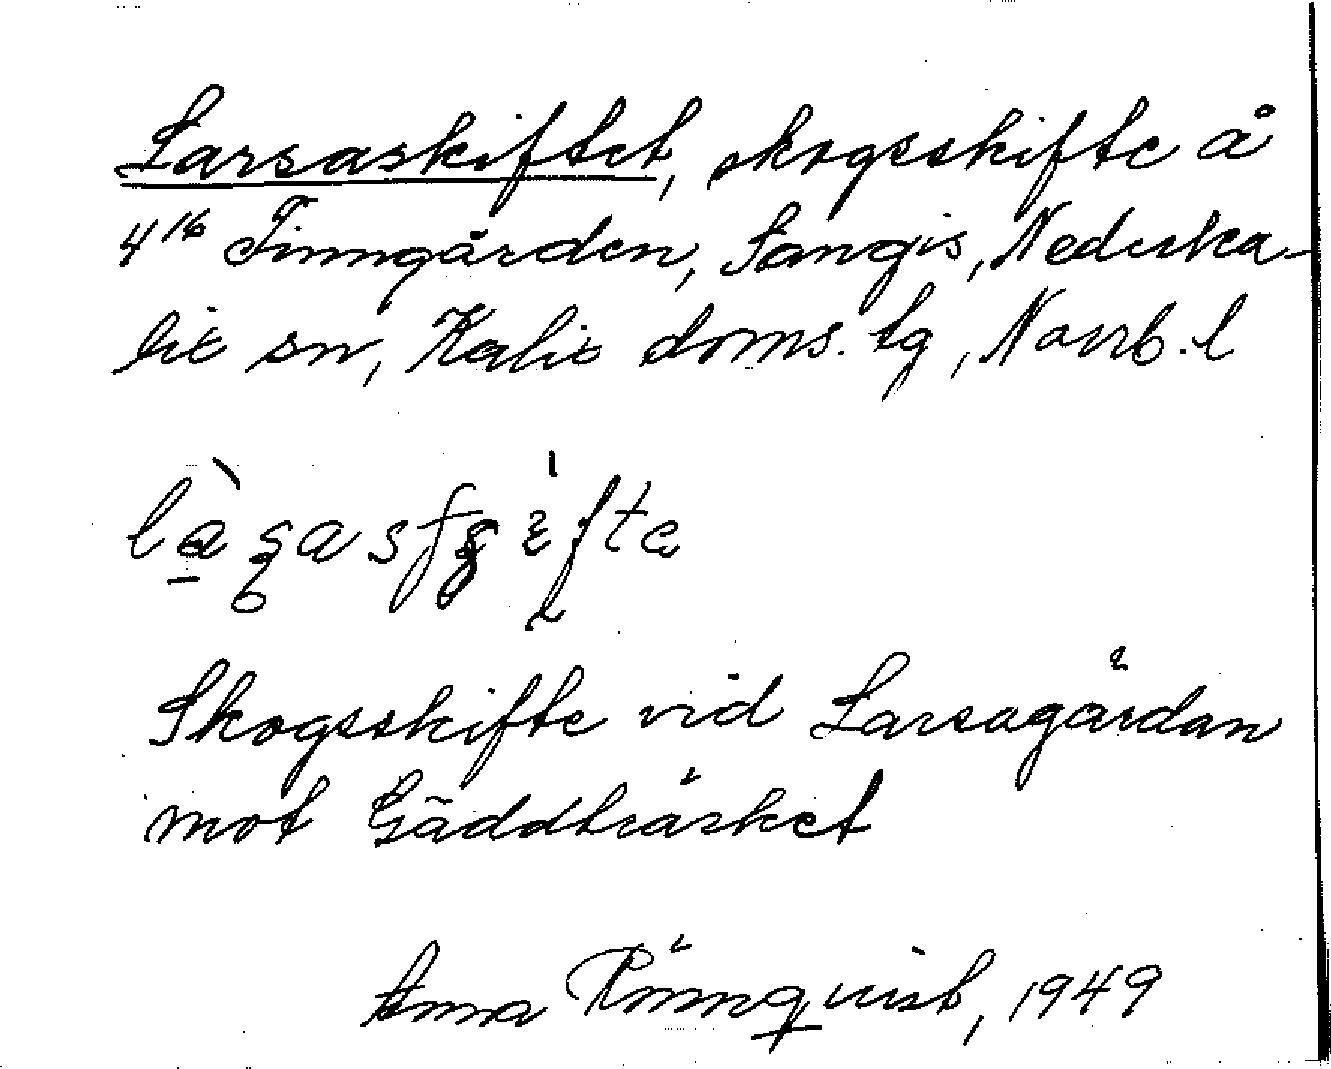 Larsaskiftet, skogsskifte å
4¹⁶ Finngården, Sangis, Nederka-
lix sn, Kalix doms. tg, Norrb. l
Skogsskifte vid Larsagårdan
mot Gäddträsket
Anna Rönnquist, 1949